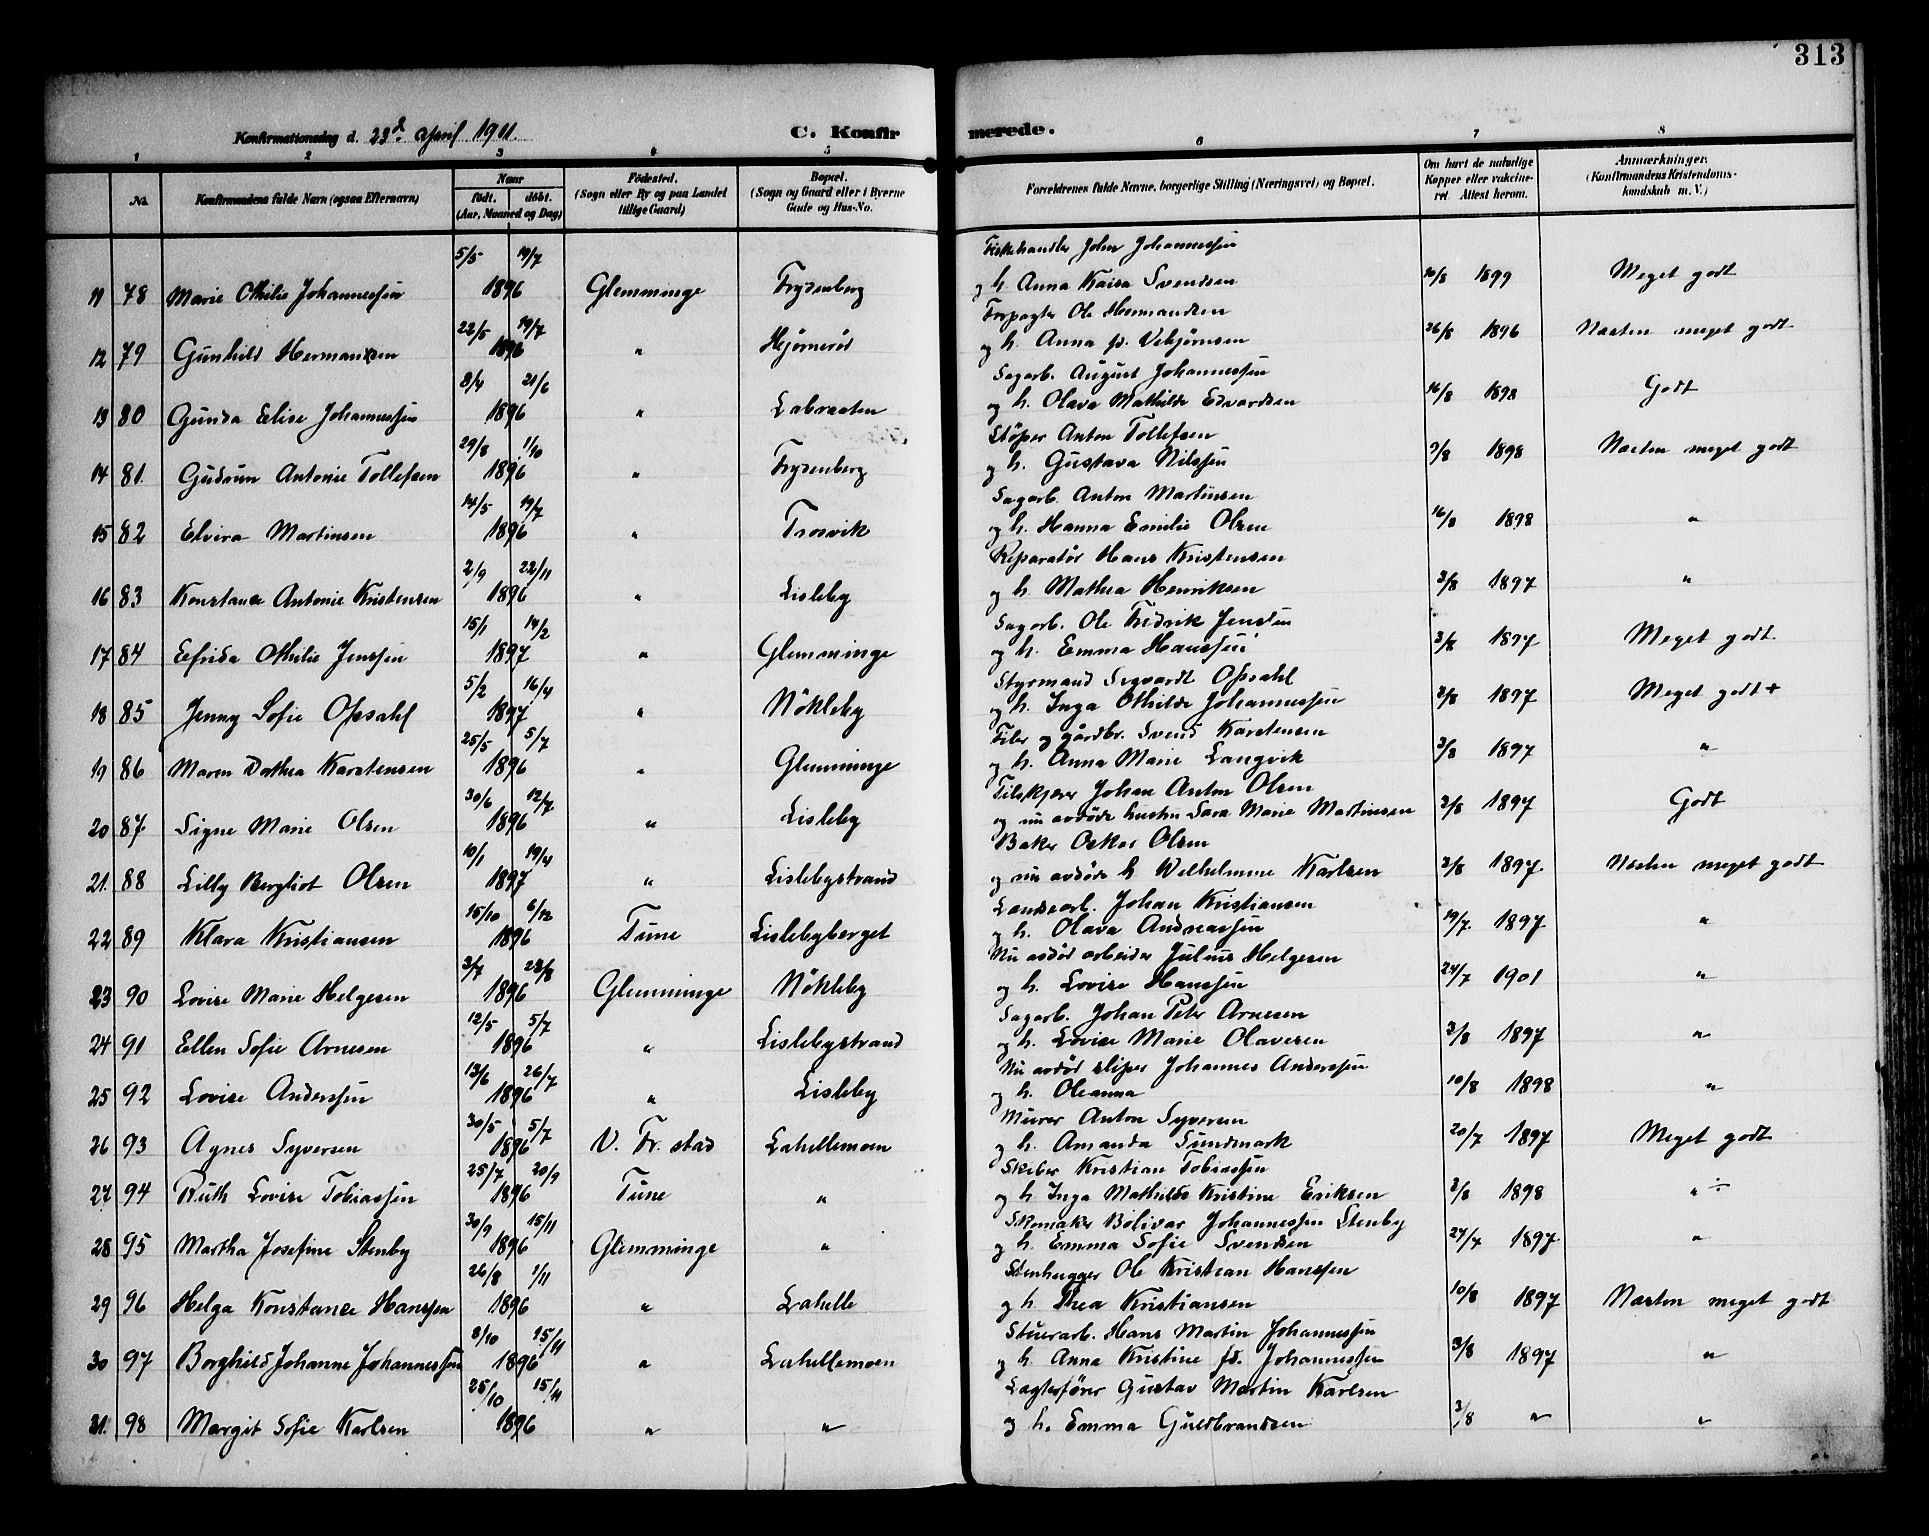 313
Konfirmationsdag d. 23d. April 1911.
C. Konfirmerede.
1 2 3 4 5 6 7 8
No.
Konfirmandens fulde Navn (ogsaa Efternavn)
Naar
født. døbt.
(Aar, Maaned og Dag)
Fødested.
(Sogn eller By og paa Landet
tillige Gaard)
Bopæl.
(Sogn og Gaard eller i Byerne
Gade og Hus-No.
Forældrenes fulde Navne, borgerlige Stilling (Næringsvei) og Bopæl.
Om havt de naturlige
Kopper eller vakcine-
ret Attest herom.
Anmærkninger.
(Konfirmandens Kristendoms-
kundskab m. V.)
5/5 19/7 Fiskehandler John Johannessen
11 78 Marie Othilie Johannessen 1896 Glemminge Frydenberg og h. Anna Kaisa Svendsen 10/8 1899 Meget godt
22/5 19/7 Forpagter Ole Hermandsen
12 79 Gunhild Hermansen 1896 " Hjørnerød og h. Anna fr. Vebjørnsen 26/8 1896 Næsten meget godt
8/4 21/6 Sagarb. August Johannessen
13 80 Gunda Elise Johannessen 1896 " Labraaten og h. Olava Mathilde Edvardsen 16/8 1898 Godt
29/8 1/10 Støper Anton Tollefsen
14 81. Gudrun Antonie Tollefsen 1896 " Frydenberg og h. Gustava Nilssen 3/8 1898 Næsten meget godt
14/5 19/7 Sagarb. Anton Martinsen
15 82 Elvira Martinsen 1896 " Trosvik og h. Hanna Emilie Olsen 16/8 1898 "
2/9 22/11 Reparatør Hans Kristensen
16 83 Konstance Antonie Kristensen 1896 " Lisleby og h. Mathea Henriksen 3/8 1897 "
15/1 14/2 Sagarb. Ole Fredrik Jensen
17 84 Elfrida Othilie Jenssen 1897 " Glemminge og h. Emma Hanssen 3/8 1897 Meget godt
5/2 16/4 Styrmand Sigvardt Opsahl
18 85 Jenny Sofie Opsahl 1897 " Nökleby og h. Inga Othilde Johannessen 3/8 1897 Meget godt +
25/5 5/7 Filer og gårdbr. Svend Karstensen
19 86 Maren Dorthea Karstensen 1896 " Glemminge og h. Anna Marie Langvik 3/8 1897 "
30/6 12/7 Filskjærer Johan Anton Olsen
20 87. Signe Marie Olsen 1896 " Lisleby og nu avdöde hustru Sara Marie Martinsen 3/8 1897 Godt
10/1 19/4 Baker Oskar Olsen
21. 88 Lilly Bergliot Olsen 1897 " Lislebystrand og nu avdöde h Wilhelmine Karlsen 3/8 1897. Næsten meget godt
15/10 6/12 Landsarb. Johan Kristiansen
22 89 Klara Kristiansen 1896 Tune Lislebyberget og h. Olava Andreassen 19/7. 1897 "
3/7 23/8 Nu avdöd arbeider Julius Helgesen
23 90 Lovise Marie Helgesen 1896 Glemminge Nökleby og h. Lovise Hanssen 24/7 1901 "
12/5 5/7 Sagarb. Johan Peter Arnesen
24 91 Ellen Sofie Arnesen 1896 " Lislebystrand og h. Lovise Marie Olavesen 3/8 1897 "
13/6 26/7 Nu avdöd sliper Johannes Anderssen
25 92 Lovise Anderssen 1896 " Lisleby og h. Oleanna 10/8 1898 "
30/5 5/7 Murer Anton Syversen
26 93 Agnes Syversen 1896 V. Fr. stad Lahellemoen og h. Amanda Sundmark 20/7 1897 Meget godt
25/7 20/9 Kristian Tobiassen
27 94 Ruth Lovise Tobiassen 1896 Tune " og h Inga Mathilde Kristine Eriksen 3/8 1898 " ÷
30/9 15/11 Skomaker Bolivar Johannessen Stenby
28 95 Martha Josefine Stenby 1896 Glemminge " og h. Emma Sofie Svendsen 27/7 1897 "
26/8 1/11 Stenhugger Ole Kristian Hanssen
29 96 Helga Konstanse Hanssen 1896 " Lahelle og h. Thea Kristiansen 10/8 1897 Næsten meget godt
8/10 15/11 Stuerarb. Hans Martin Johannessen
30 97 Borghild Johanne Johannessen 1896 " Lahellemoen og h. Anna Kristine fd. Johannessen 3/8 1897 "
25/10 15/11 Lagterförer Gustav Martin Karlsen
31. 98 Margit Sofie Karlsen 1896 " " og h. Emma Guldbrandsen 3/8 " "